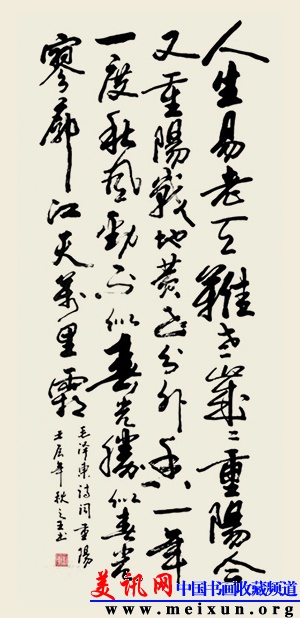 人生易老天難老歲々重陽今
又重陽戰地黄花分外香一年
一度秋风勁不似春光勝似春光
寥廓江天萬里霜
毛泽东詩词重陽
壬辰年秋之
美讯网 中国书画收藏频道
www.meixun.org